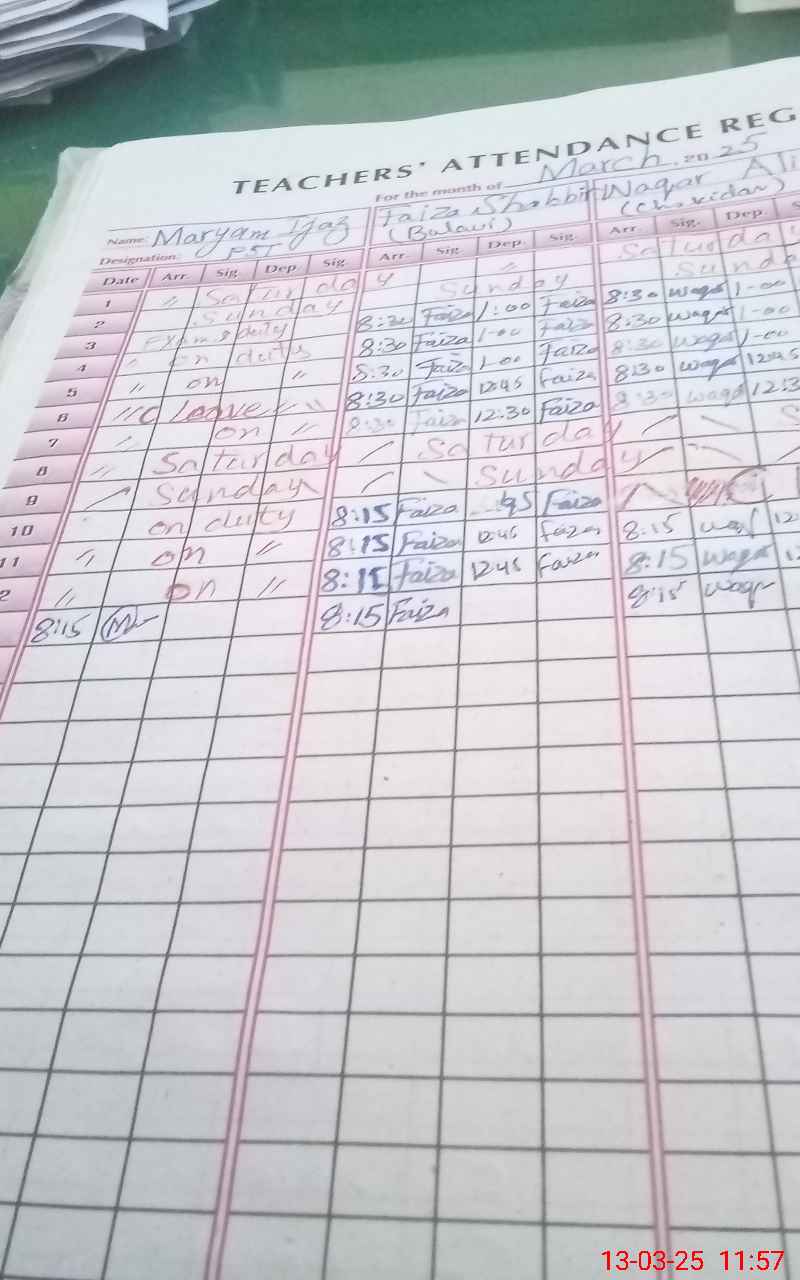 TEACHERS' ATTENDANCE REG
For the month of March. 20 25
Name: Maryam Ijaz Faiza Shabbir Waqar Ali
Designation: PST (Balawi) (Chokidar)
Date Arr. Sig. Dep. Sig. Arr. Sig. Dep. Sig. Arr. Sig. Dep. S
1 " Saturday " Saturday
2 Sunday Sunday Sunda
3 Exam duty 8:30 Faiza 1:00 Faiza 8:30 Waqar 1-00
4 " on duty 8:30 Faiza 1-00 Faiza 8:30 Waqar 1-00
5 " on " 8:30 Faiza 1-00 Faiza 8:30 Waqar 1-00
6 " C leave " " 8:30 Faiza 12:45 Faiza 8:30 Waqar 12:45
7 " on " 8:30 Faiza 12:30 Faiza 8:30 Waqar 12:3
8 " Saturday Saturday S
9 Sunday Sunday
10 on duty 8:15 Faiza 45 Faiza
11 " on " 8:15 Faiza 12:45 Faiza 8:15 Waqar 12
2 " on " 8:15 Faiza 12:45 Faiza 8:15 Waqar 12
8:15 8:15 Faiza 8:15 Waqar
13-03-25 11:57